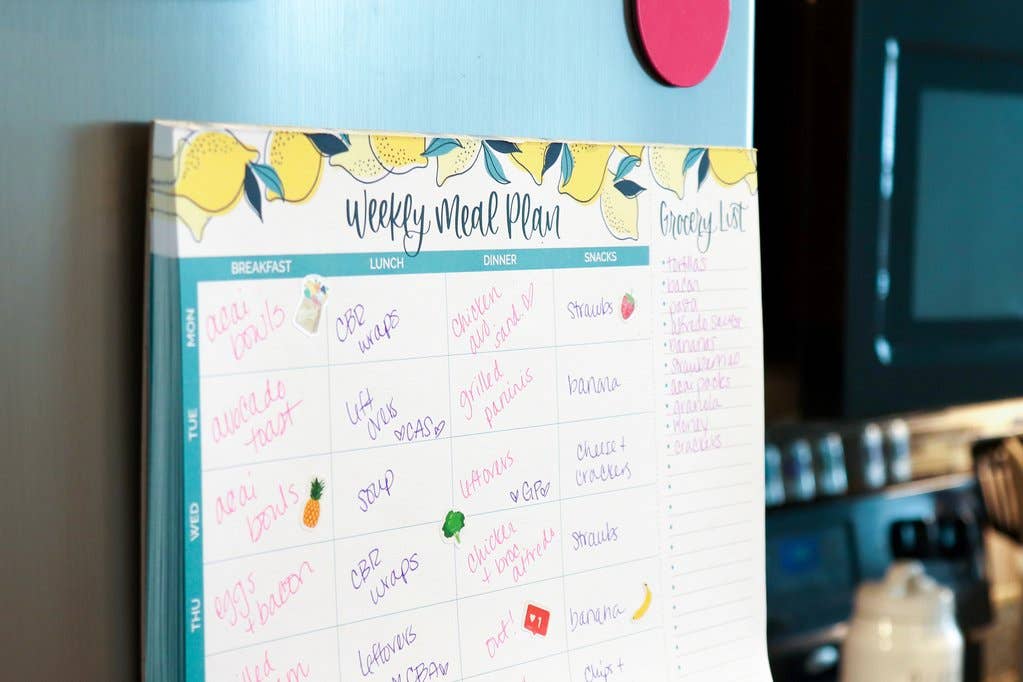 Weekly Meal Plan
Grocery List
BREAKFAST
LUNCH
DINNER
SNACKS
MON
acai
bowls
CBR
wraps
chicken
avo
sand.
Straubs
TUE
avocado
toast
left
overs
CAS
grilled
paninis
banana
WED
acai
bowls
soup
leftovers
GP
cheese +
crackers
THU
eggs
+ bacon
CBR
wraps
chicken
+ broc
alfredo
Straubs
leftovers
CBA
out!
1
banana
chips +
tortillas
bacon
pasta
alfredo sauce
bananas
strawberries
acai packs
granola
honey
crackers